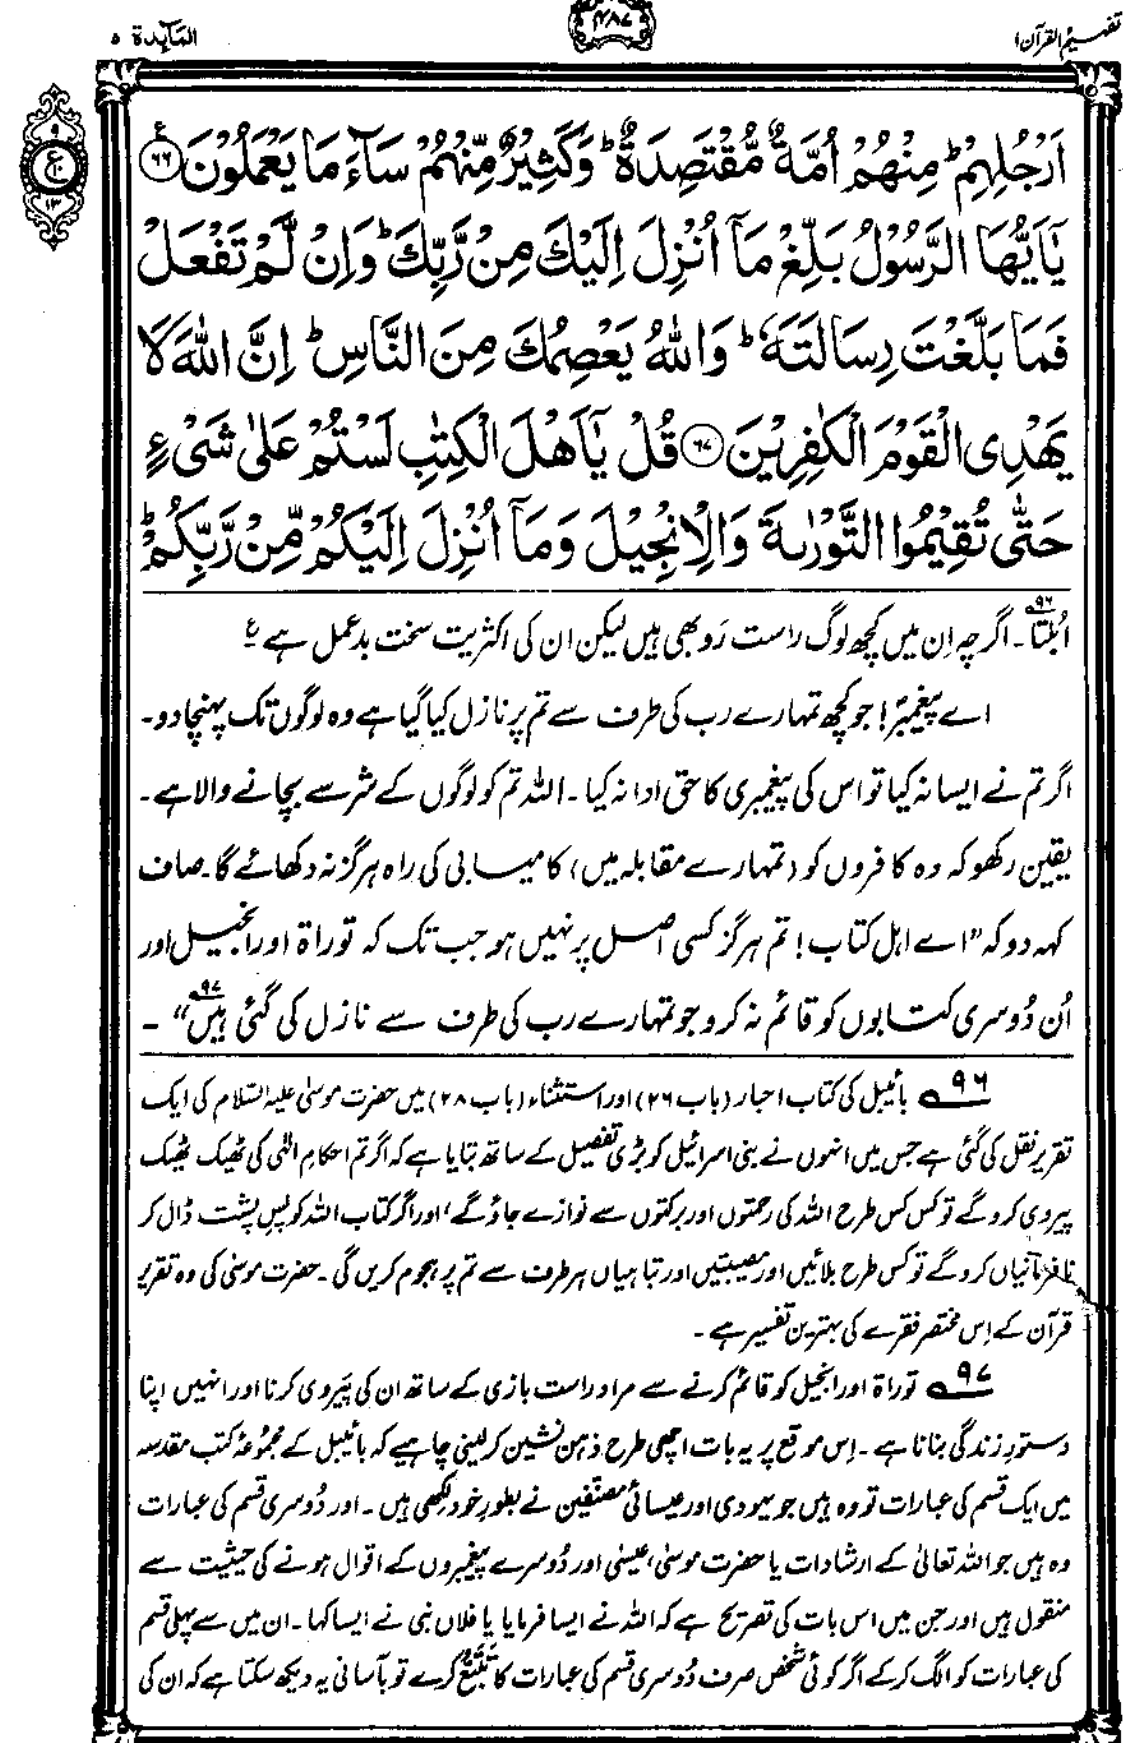 تفہیم القرآن ۱
۴۸۷
المآىِٕدة ۵
اَرْجُلِهِمْ ؕ مِنْهُمْ اُمَّةٌ مُّقْتَصِدَةٌ ؕ وَكَثِيْرٌ مِّنْهُمْ سَآءَ مَا يَعْمَلُوْنَ ﴿۶۶﴾ ع
يٰۤاَيُّهَا الرَّسُوْلُ بَلِّغْ مَاۤ اُنْزِلَ اِلَيْكَ مِنْ رَّبِّكَ ؕ وَاِنْ لَّمْ تَفْعَلْ
فَمَا بَلَّغْتَ رِسَالَتَهٗ ؕ وَاللّٰهُ يَعْصِمُكَ مِنَ النَّاسِ ؕ اِنَّ اللّٰهَ لَا
يَهْدِى الْقَوْمَ الْكٰفِرِيْنَ ﴿۶۷﴾ قُلْ يٰۤاَهْلَ الْكِتٰبِ لَسْتُمْ عَلٰى شَىْءٍ
حَتّٰى تُقِيْمُوا التَّوْرٰىةَ وَالْاِنْجِيْلَ وَمَاۤ اُنْزِلَ اِلَيْكُمْ مِّنْ رَّبِّكُمْ ؕ
اُبلتا۹۶۔ اگرچہ اِن میں کچھ لوگ راست رَو بھی ہیں لیکن ان کی اکثریت سخت بدعمل ہے ؏
اے پیغمبرؐ! جو کچھ تمہارے رب کی طرف سے تم پر نازل کیا گیا ہے وہ لوگوں تک پہنچا دو۔
اگر تم نے ایسا نہ کیا تو اس کی پیغمبری کا حق ادا نہ کیا۔ اللہ تم کو لوگوں کے شر سے بچانے والا ہے۔
یقین رکھو کہ وہ کافروں کو (تمہارے مقابلہ میں) کامیابی کی راہ ہرگز نہ دکھائے گا۔ صاف
کہہ دو کہ ”اے اہل کتاب! تم ہرگز کسی اصل پر نہیں ہو جب تک کہ توراۃ اور انجیل اور
اُن دُوسری کتابوں کو قائم نہ کرو جو تمہارے رب کی طرف سے نازل کی گئی ہیں۹۷“ ۔
۹۶ بائیبل کی کتاب احبار (باب ۲۶) اور استثناء (باب ۲۸) میں حضرت موسیٰ علیہ السّلام کی ایک
تقریر نقل کی گئی ہے جس میں انہوں نے بنی اسرائیل کو بڑی تفصیل کے ساتھ بتایا ہے کہ اگر تم احکامِ الٰہی کی ٹھیک ٹھیک
پیروی کرو گے تو کس کس طرح اللہ کی رحمتوں اور برکتوں سے نوازے جاؤ گے، اور اگر کتاب اللہ کو پسِ پشت ڈال کر
نافرمانیاں کرو گے تو کس طرح بلائیں اور مصیبتیں اور تباہیاں ہر طرف سے تم پر ہجوم کریں گی۔ حضرت موسیٰ کی وہ تقریر
قرآن کے اِس مختصر فقرے کی بہترین تفسیر ہے۔
۹۷ توراۃ اور انجیل کو قائم کرنے سے مراد راست بازی کے ساتھ ان کی پَیروی کرنا اور انہیں اپنا
دستورِ زندگی بنانا ہے۔ اِس موقع پر یہ بات اچھی طرح ذہن نشین کر لینی چاہیے کہ بائیبل کے مجمُوعۂ کتب مقدسہ
میں ایک قسم کی عبارات تو وہ ہیں جو یہودی اور عیسائی مصنّفین نے بطورِ خود لکھی ہیں۔ اور دُوسری قسم کی عبارات
وہ ہیں جو اللہ تعالیٰ کے ارشادات یا حضرت موسیٰ، عیسیٰ اور دُوسرے پیغمبروں کے اقوال ہونے کی حیثیت سے
منقول ہیں اور جن میں اس بات کی تصریح ہے کہ اللہ نے ایسا فرمایا یا فلاں نبی نے ایسا کہا۔ ان میں سے پہلی قسم
کی عبارات کو الگ کر کے اگر کوئی شخص صرف دُوسری قسم کی عبارات کا تَتَبُّع کرے تو بآسانی یہ دیکھ سکتا ہے کہ ان کی
۹
ع
۱۰
۱۳